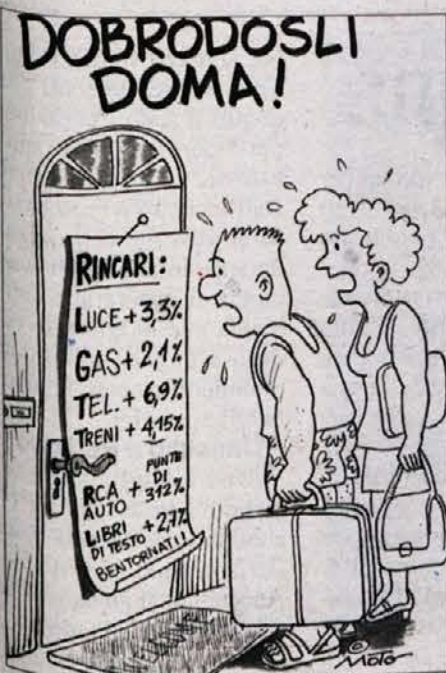 DOBRODOSLI
DOMA!
RINCARI:
LUCE + 3,3%
GAS + 2,1%
TEL. + 6,9%
TRENI + 4,15%
RCA AUTO + PUNTE DI 312%
LIBRI DI TESTO + 2,7%
BENTORNATI!
Moto